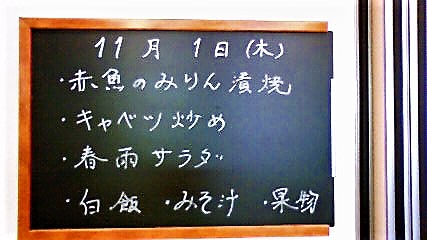 11月 1日(木)
・赤魚のみりん漬焼
・キャベツ炒め
・春雨サラダ
・白飯 ・みそ汁 ・果物